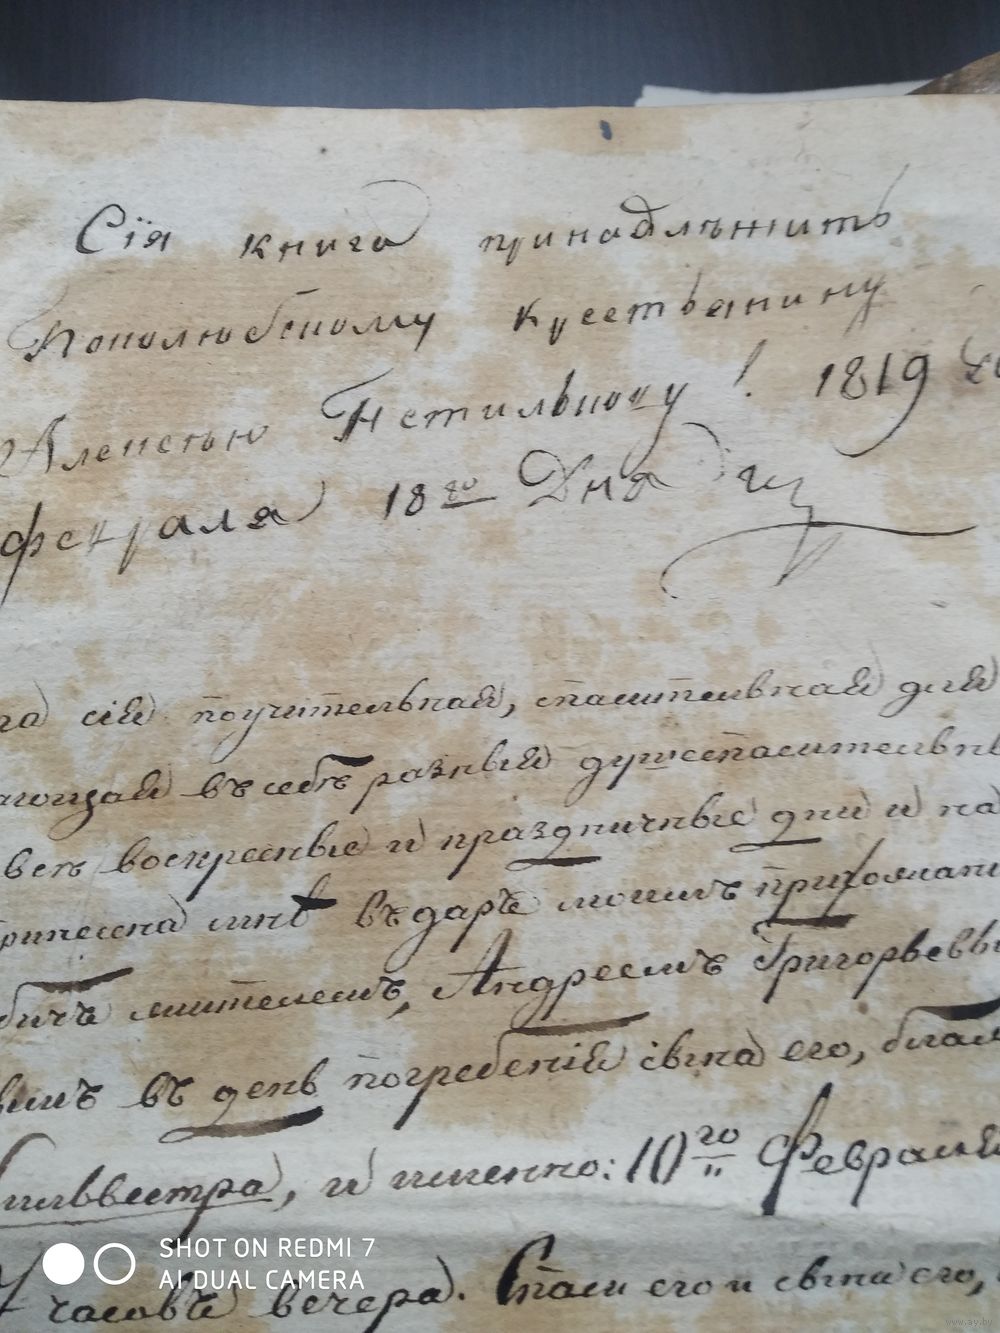 Сія книга принадлѣжитъ
Кополюбскому крестьянину
Алексѣю 1819
февраля 18го Дня
сія поучительная, спасительная для
въ себѣ разныя душеспасительны
воскресные и праздничные дни и на
принесена мнѣ въ даръ моимъ прихожани
жителемъ, Андреемъ Григорьевы
въ день погребенія сына его, благ
Сильвестра, и именно: 10го Февраля
7 часовъ вечера. Спаси его и сына его,
SHOT ON REDMI 7
AI DUAL CAMERA
www.ay.by